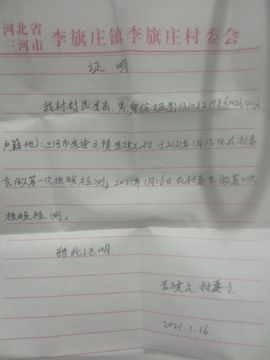 河北省
三河市 李旗庄镇李旗庄村委会
证明
我村村民李 男 身份证号:
户籍地:三河市李旗庄镇李旗庄村 于2021年1月13日在村委
会做第一次核酸检测,2021年1月16日在村委会做第二次
核酸检测。
特此证明
李旗庄村委会
2021.1.16